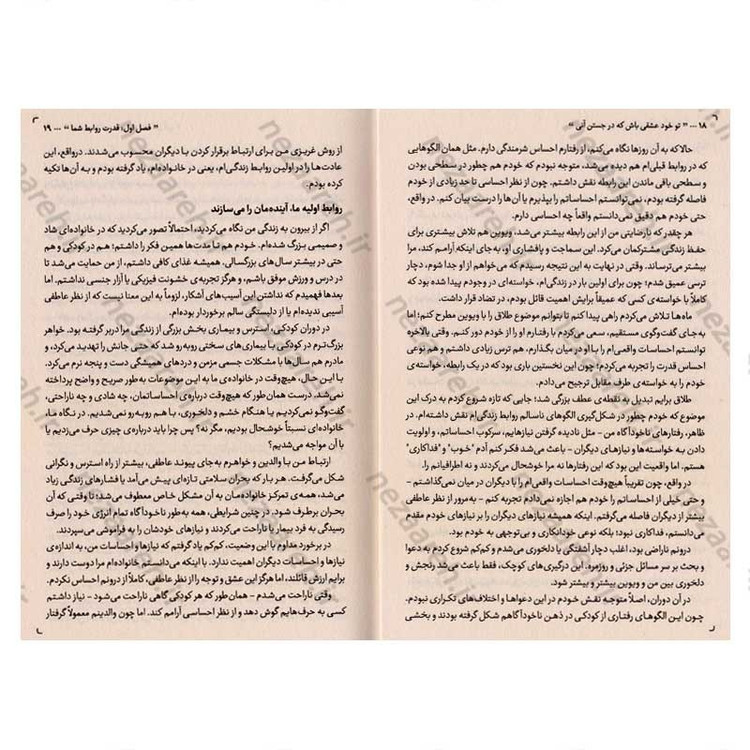 ۱۸ ... " تو خود عشقی باش که در جستن آنی "
حالا که به آن روزها نگاه می‌کنم، از رفتارم احساس شرمندگی دارم. مثل همان الگوهایی
که در روابط قبلی‌ام هم دیده می‌شد، متوجه نبودم که خودم هم چطور در سطحی بودن
و سطحی باقی ماندن این رابطه نقش داشتم. چون از نظر احساسی تا حد زیادی از خودم
فاصله گرفته بودم، نمی‌توانستم احساساتم را بپذیرم یا آن‌ها را درست بیان کنم. در واقع،
حتی خودم هم دقیق نمی‌دانستم واقعاً چه احساسی دارم.
هر چقدر که نارضایتی من از این رابطه بیشتر می‌شد، ویوین هم تلاش بیشتری برای
حفظ زندگی مشترکمان می‌کرد. این سماجت و پافشاری او، به جای اینکه آرامم کند، مرا
بیشتر می‌ترساند. وقتی در نهایت به این نتیجه رسیدم که می‌خواهم از او جدا شوم، دچار
ترسی عمیق شدم؛ چون برای اولین بار در زندگی‌ام، خواسته‌ای در وجودم پیدا شده بود که
کاملاً با خواسته‌ی کسی که عمیقاً برایش اهمیت قائل بودم، در تضاد قرار داشت.
ماه‌ها تلاش می‌کردم راهی پیدا کنم تا بتوانم موضوع طلاق را با ویوین مطرح کنم؛ اما
به جای گفت‌وگوی مستقیم، سعی می‌کردم با رفتارم او را از خودم دور کنم. وقتی بالاخره
توانستم احساسات واقعی‌ام را با او در میان بگذارم، هم ترس شدیدی داشتم و هم نوعی
احساس قدرت را تجربه می‌کردم؛ چون این نخستین باری بود که در یک رابطه، خواسته‌ی
خودم را به خواسته‌ی طرف مقابل ترجیح می‌دادم.
طلاق برایم تبدیل به نقطه‌ی عطف بزرگی شد؛ جایی که تازه شروع کردم به درک این
موضوع که خودم چطور در شکل‌گیری الگوهای ناسالم روابط زندگی‌ام نقش داشته‌ام. در
ظاهر، رفتارهای ناخودآگاه من - مثل نادیده گرفتن نیازهایم، سرکوب احساساتم، و اولویت
دادن به خواسته‌ها و نیازهای دیگران - باعث می‌شد فکر کنم آدم "خوب" و "فداکاری"
هستم. اما واقعیت این بود که این رفتارها نه مرا خوشحال می‌کردند و نه اطرافیانم را.
در واقع، چون تقریباً هیچ‌وقت احساسات واقعی‌ام را با دیگران در میان نمی‌گذاشتم -
و حتی خیلی از احساساتم را خودم هم اجازه نمی‌دادم تجربه کنم - به‌مرور از نظر عاطفی
بیشتر از دیگران فاصله می‌گرفتم. اینکه همیشه نیازهای دیگران را بر نیازهای خودم مقدم
می‌دانستم، فداکاری نبود؛ بلکه نوعی خودانکاری و بی‌توجهی به خودم بود.
درونم ناراضی بود، اغلب دچار آشفتگی یا دلخوری می‌شدم و کم‌کم شروع کردم به دعوا
و بحث بر سر مسائل جزئی و روزمره. این درگیری‌های کوچک، فقط باعث می‌شد رنجش و
دلخوری بین من و ویوین بیشتر و بیشتر شود.
در آن دوران، اصلاً متوجه نقش خودم در این دعواها و اختلاف‌های تکراری نبودم.
چون این الگوهای رفتاری از کودکی در ذهن ناخودآگاهم شکل گرفته بودند و بخشی
" فصل اول: قدرت روابط شما " ... ۱۹
از روش غریزی من برای ارتباط برقرار کردن با دیگران محسوب می‌شدند. درواقع، این
عادت‌ها را در اولین روابط زندگی‌ام، یعنی در خانواده‌ام، یاد گرفته بودم و به آن‌ها تکیه
کرده بودم.
روابط اولیه ما، آینده‌مان را می‌سازند
اگر از بیرون به زندگی من نگاه می‌کردید، احتمالاً تصور می‌کردید که در خانواده‌ای شاد
و صمیمی بزرگ شده‌ام. خودم هم تا مدت‌ها همین فکر را داشتم؛ هم در کودکی و هم
حتی در بیشتر سال‌های بزرگسالی. همیشه غذای کافی داشتم، از من حمایت می‌شد تا
در درس و ورزش موفق باشم، و هرگز تجربه‌ی خشونت فیزیکی یا آزار جنسی نداشتم. اما
بعدها فهمیدم که نداشتن این آسیب‌های آشکار، لزوماً به این معنا نیست که از نظر عاطفی
آسیبی ندیده‌ام یا از دلبستگی سالم برخوردار بوده‌ام.
در دوران کودکی، استرس و بیماری بخش بزرگی از زندگی مرا دربر گرفته بود. خواهر
بزرگ‌ترم در کودکی با بیماری‌های سختی روبه‌رو شد که حتی جانش را تهدید می‌کرد، و
مادرم هم سال‌ها با مشکلات جسمی مزمن و دردهای همیشگی دست و پنجه نرم می‌کرد.
با این حال، هیچ‌وقت در خانواده‌ی ما به این موضوعات به طور صریح و واضح پرداخته
نمی‌شد. درست همان‌طور که هیچ‌وقت درباره‌ی احساساتمان، چه شادی و چه ناراحتی،
گفت‌وگو نمی‌کردیم یا هنگام خشم و دلخوری، با هم روبه‌رو نمی‌شدیم. در نگاه ما،
خانواده‌ای نسبتاً خوشحال بودیم، مگر نه؟ پس چرا باید درباره‌ی چیزی حرف می‌زدیم یا
با آن مواجه می‌شدیم؟
ارتباط من با والدین و خواهرم به جای پیوند عاطفی، بیشتر از راه استرس و نگرانی
شکل می‌گرفت. هر بار که بحران سلامتی تازه‌ای پیش می‌آمد یا فشارهای زندگی زیاد
می‌شد، همه‌ی تمرکز خانواده‌مان به آن مشکل خاص معطوف می‌شد؛ تا وقتی که آن
بحران برطرف شود. در چنین شرایطی، همه به‌طور ناخودآگاه تمام انرژی خود را صرف
رسیدگی به فرد بیمار یا ناراحت می‌کردند و نیازهای خودشان را به فراموشی می‌سپردند.
در برخورد مداوم با این وضعیت، کم‌کم یاد گرفتم که نیازها و احساسات من، به اندازه‌ی
نیازها و احساسات دیگران اهمیت ندارد. با اینکه می‌دانستم خانواده‌ام مرا دوست دارند و
برایم ارزش قائلند، اما هرگز این عشق و توجه را از نظر عاطفی، کاملاً در درونم احساس نکردم.
وقتی ناراحت می‌شدم - همان‌طور که هر کودکی گاهی ناراحت می‌شود - نیاز داشتم
کسی به حرف‌هایم گوش دهد و از نظر احساسی آرامم کند. اما چون والدینم معمولاً گرفتار